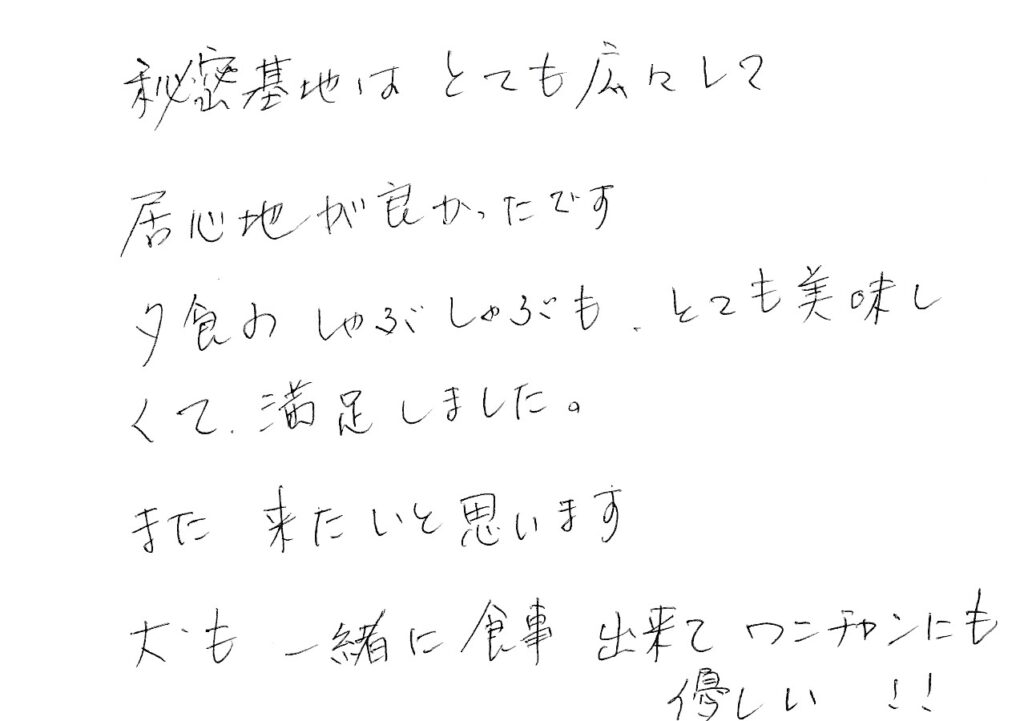 秘密基地は とても広々して
居心地が良かったです
夕食のしゃぶしゃぶも、とても美味し
くて、満足しました。
また 来たいと思います
犬も 一緒に食事 出来てワンチャンにも
優しい !!